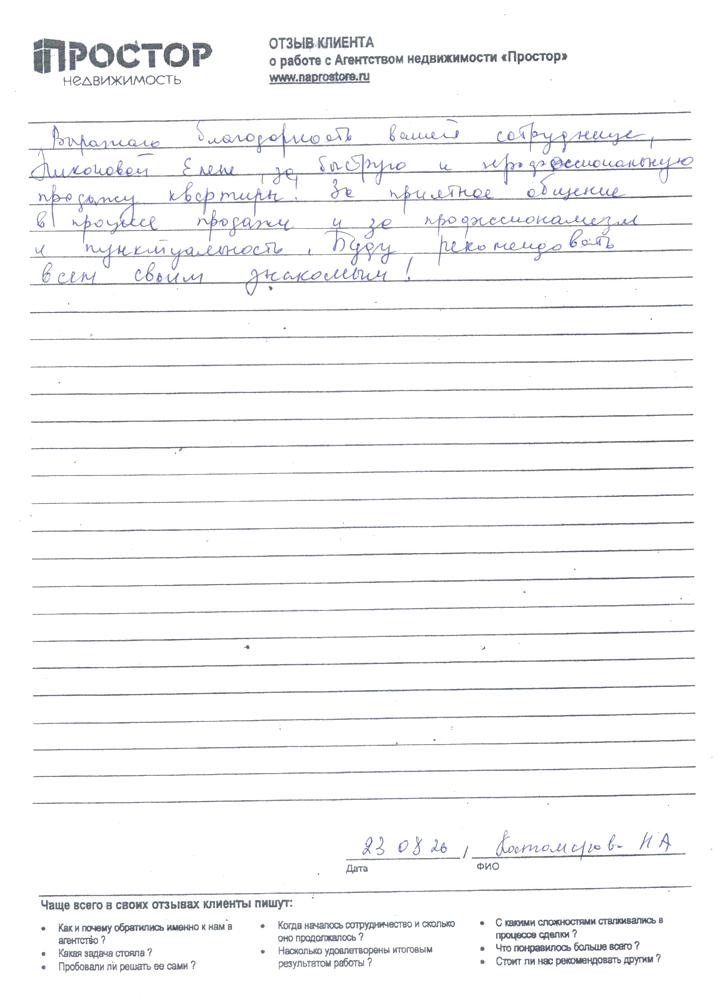 ПРОСТОР
НЕДВИЖИМОСТЬ
ОТЗЫВ КЛИЕНТА
о работе с Агентством недвижимости «Простор»
www.naprostore.ru
Выражаю благодарность вашей сотруднице,
Никоновой Елене, за быструю и профессиональную
продажу квартиры! За приятное общение
в процессе продажи и за профессионализм
и пунктуальность. Буду рекомендовать
всем своим знакомым!
23 08 20, Костомарова НА
Дата ФИО
Чаще всего в своих отзывах клиенты пишут:
• Как и почему обратились именно к нам в агентство ?
• Какая задача стояла ?
• Пробовали ли решать ее сами ?
• Когда началось сотрудничество и сколько оно продолжалось ?
• Насколько удовлетворены итоговым результатом работы ?
• С какими сложностями сталкивались в процессе сделки ?
• Что понравилось больше всего ?
• Стоит ли нас рекомендовать другим ?